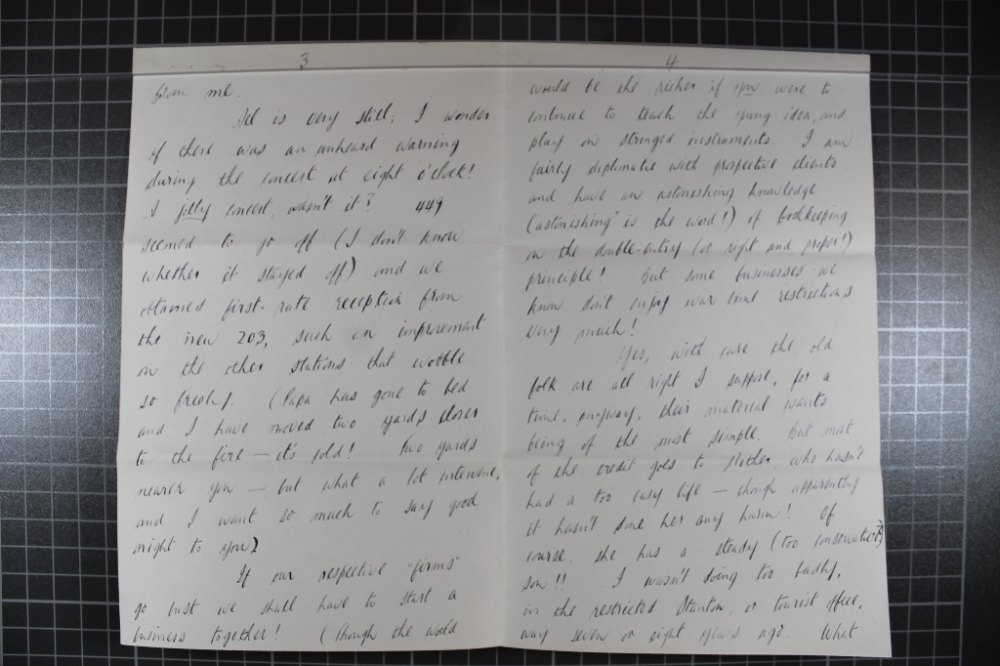 3
from me.
All is very still; I wonder
if there was an unheard warning
during the concert at eight o'clock!
A jolly concert, wasn't it? 449
seemed to go off (I don't know
whether it stayed off) and we
obtained first-rate reception from
the new 203, such an improvement
on the other stations that wobble
so freely. (Papa has gone to bed
and I have moved two yards closer
to the fire — it's cold! Two yards
nearer you — but what a lot intervene,
and I want so much to say good
night to you)
If our respective "firms"
go bust we shall have to start a
business together! (Though the world
4
would be the richer if you were to
continue to teach the young idea, and
play on stringed instruments. I am
fairly diplomatic with prospective clients
and have an astonishing knowledge
("astonishing" is the word!) of bookkeeping
on the double-entry (or right and proper!)
principle! But some businesses we
know don't enjoy war time restrictions
very much!
Yes, with care the old
folk are all right I suppose, for a
time, anyway, their material wants
being of the most simple. But most
of the credit goes to Mother, who hasn't
had a too easy life — though apparently
it hasn't done her any harm! Of
course she has a steady (too conservative?)
son!! I wasn't doing too badly,
in the restricted Stanton, or tourist office,
way seven or eight years ago. What